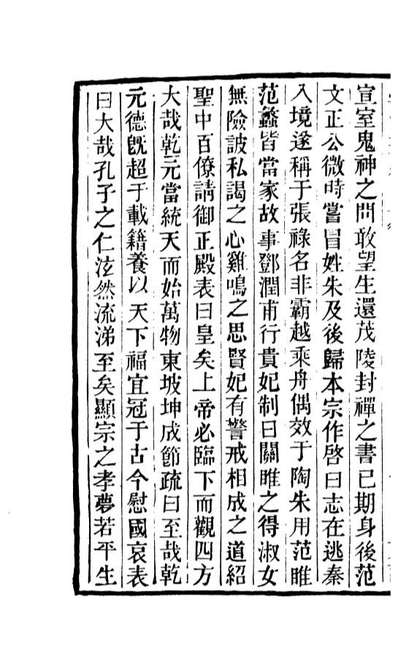 宣室鬼神之問敢望生還茂陵封禪之書已期身後范
文正公微時嘗冒姓朱及後歸本宗作啓曰志在逃秦
入境遂稱于張祿名非霸越乘舟偶效于陶朱用范雎
范蠡皆當家故事鄧潤甫行貴妃制曰關雎之得淑女
無險詖私謁之心雞鳴之思賢妃有警戒相成之道紹
聖中百僚請御正殿表曰皇矣上帝必臨下而觀四方
大哉乾元當統天而始萬物東坡坤成節疏曰至哉乾
元德既超于載籍養以天下福宜冠于古今慰國哀表
曰大哉孔子之仁泫然流涕至矣顯宗之孝夢若平生